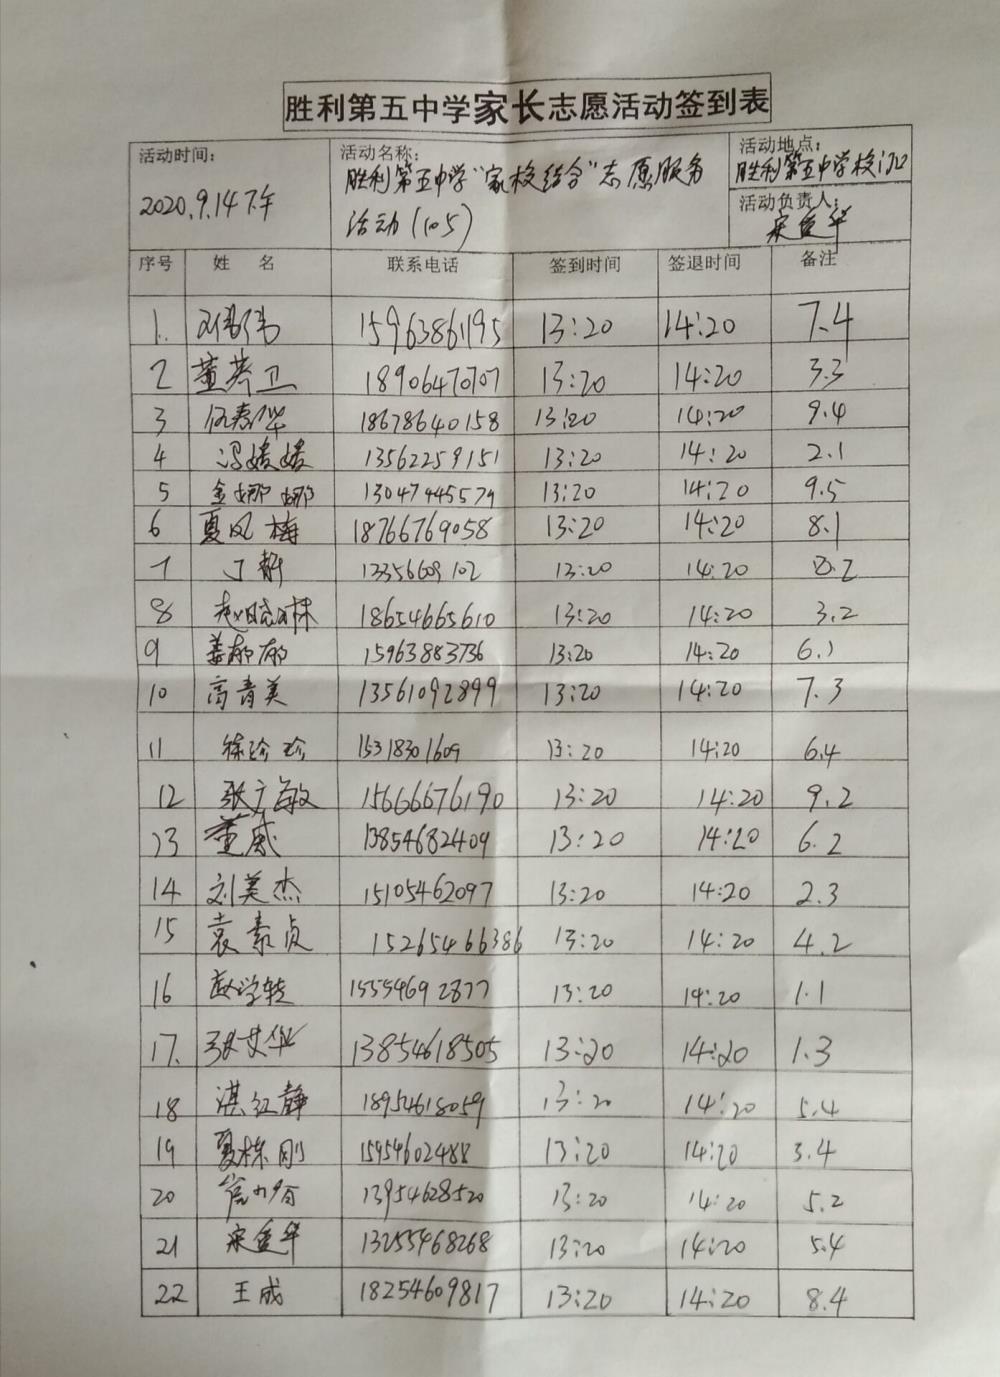 胜利第五中学家长志愿活动签到表
活动时间: 活动名称: 活动地点:
2020.9.14下午 胜利第五中学"家校结合"志愿服务 胜利第五中学校门口
活动(105) 活动负责人:
序号 姓 名 联系电话 签到时间 签退时间 备注
1. 15963861195 13:20 14:20 7.4
2 董芳卫 18906470707 13:20 14:20 3.3
3 18678640158 13:20 14:20 9.4
4 冯媛媛 13562259151 13:20 14:20 2.1
5 金娜娜 13047445579 13:20 14:20 9.5
6 夏凤梅 18766769058 13:20 14:20 8.1
7 丁静 13356609102 13:20 14:20
8 赵晓琳 18654665610 13:20 14:20 3.2
9 姜郁郁 15963883736 13:20 14:20 6.1
10 高青美 13561092899 13:20 14:20 7.3
11 徐珍珍 15318301609 13:20 14:20 6.4
12 张广敏 15666676190 13:20 14:20 9.2
13 董威 13854682409 13:20 14:20 6.2
14 刘美杰 15105462097 13:20 14:20 2.3
15 袁素贞 15265466386 13:20 14:20 4.2
16 15554692877 13:20 14:20 1.1
17. 张艾华 13854618505 13:20 14:20 1.3
18 湛红静 18954618059 13:20 14:20 5.4
19 夏栋刚 15954602488 13:20 14:20 3.4
20 13954628520 13:20 14:20 5.2
21 13255468268 13:20 14:20 5.4
22 王成 18254609817 13:20 14:20 8.4